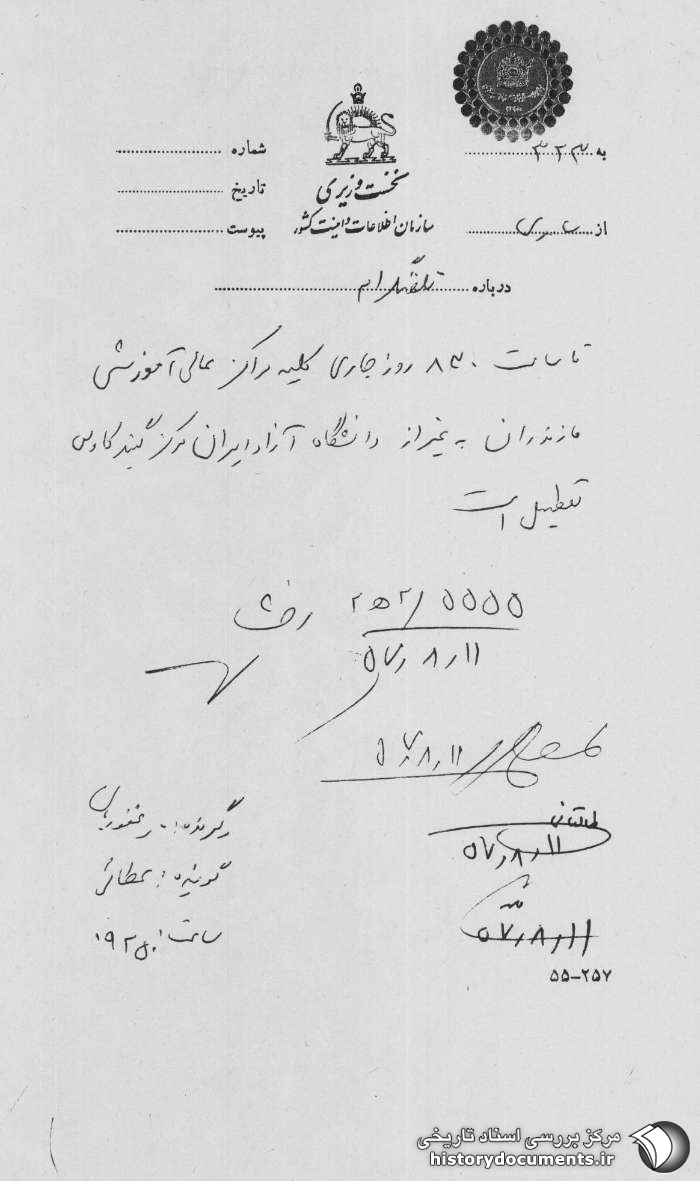 به ۳۲۳
شماره
تاریخ
نخست وزیری
از ساری
سازمان اطلاعات و امنیت کشور
پیوست
درباره تلفنگرام
تا ساعت ۸۳۰ روز جاری کلیه مراکز عالی آموزشی
مازندران به غیر از دانشگاه آزاد ایران مرکز گنبد کاوس
تعطیل است
۵۵۵۵/ ۲ﻫ۲
۵۷٫۸٫۱۱
۵۷٫۸٫۱۱
گیرنده:
طالقانی
۵۷٫۸٫۱۱
گوینده: عطائی
ساعت:
۵۷٫۸٫۱۱
۵۵-۲۵۷
مرکز بررسی اسناد تاریخی
historydocuments.ir